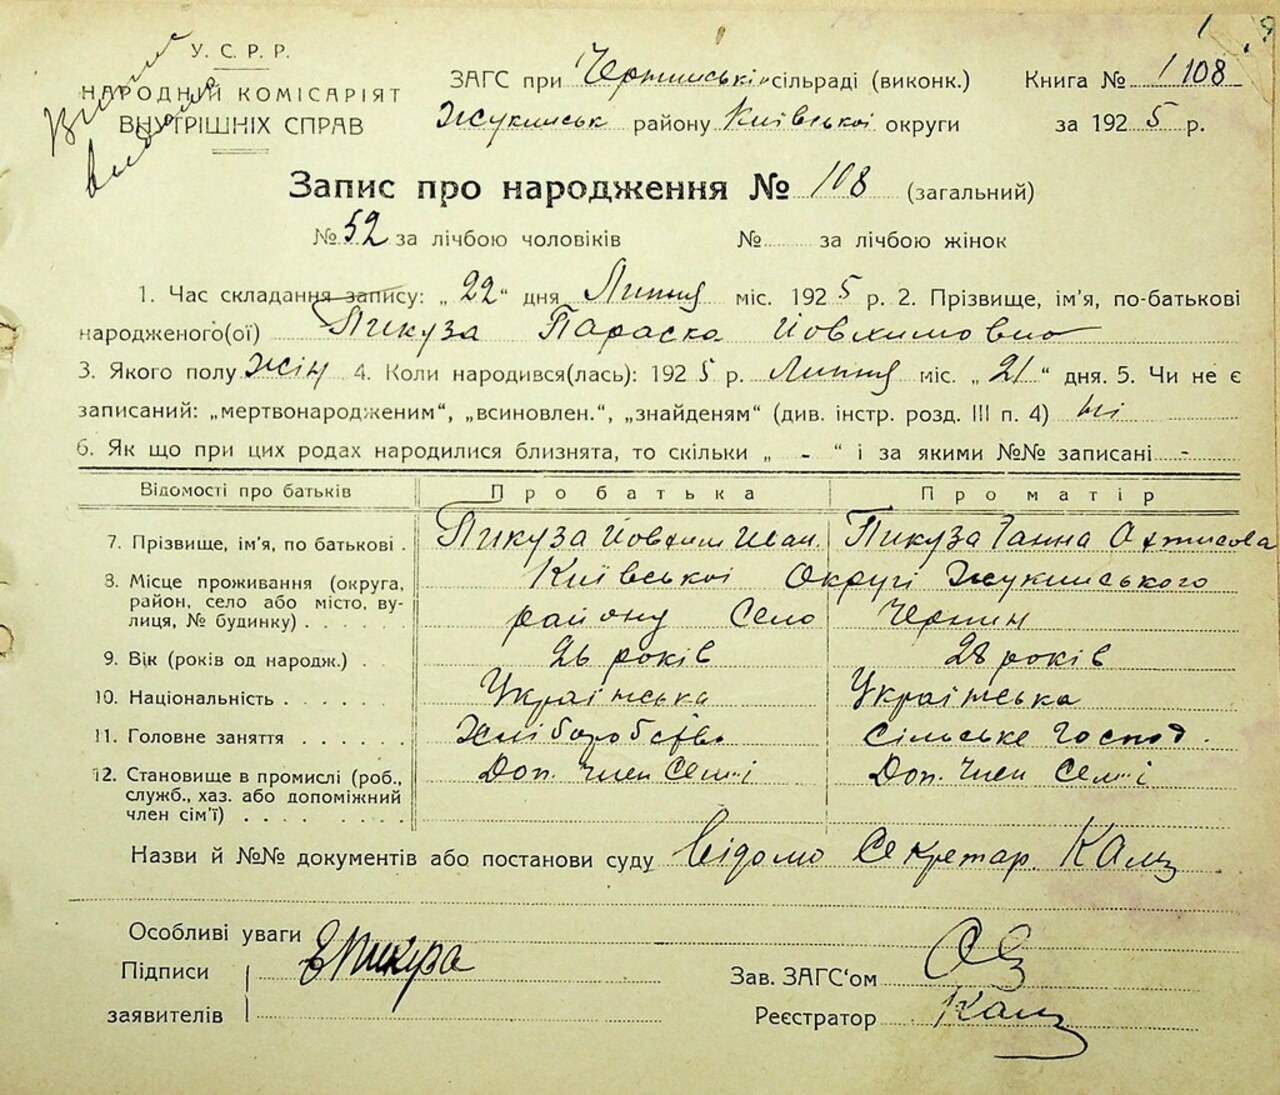 У. С. Р. Р.
НАРОДНІЙ КОМІСАРІЯТ
ВНУТРІШНІХ СПРАВ
ЗАГС при сільраді (виконк.)
району Київської округи
Книга № 108
за 1925 р.
Запис про народження № 108 (загальний)
№ 52 за лічбою чоловіків № за лічбою жінок
1. Час складання запису: „22“ дня Липня міс. 1925 р. 2. Прізвище, ім'я, по-батькові
народженого(ої) Пикуза Параска Йовхимовна
3. Якого полу Жін 4. Коли народився(лась): 1925 р. Липня міс. „21“ дня. 5. Чи не є
записаний: „мертвонародженим“, „всиновлен.“, „знайденям“ (див. інстр. розд. III п. 4) Ні
6. Як що при цих родах народилися близнята, то скільки „ - “ і за якими №№ записані -
Відомості про батьків Про батька Про матір
7. Прізвище, ім'я, по батькові . Пикуза Йовхим Иван. Пикуза Ганна
8. Місце проживання (округа, Київської Округі Жукинського
район, село або місто, ву-
лиця, № будинку) . . . . . району Село Чернин
9. Вік (років од народж.) . 26 років 28 років
10. Національність . . . . . . Українська Українська
11. Головне заняття . . . . . . Хліборобство Сільське Господ.
12. Становище в промислі (роб., Доп. Член Семї Доп. Член Семї
служб., хаз. або допоміжний
член сім'ї) . . . . . . . .
Назви й №№ документів або постанови суду Відомо Секретар.
Особливі уваги
Підписи Пикуза
заявителів
Зав. ЗАГС‘ом
Реєстратор